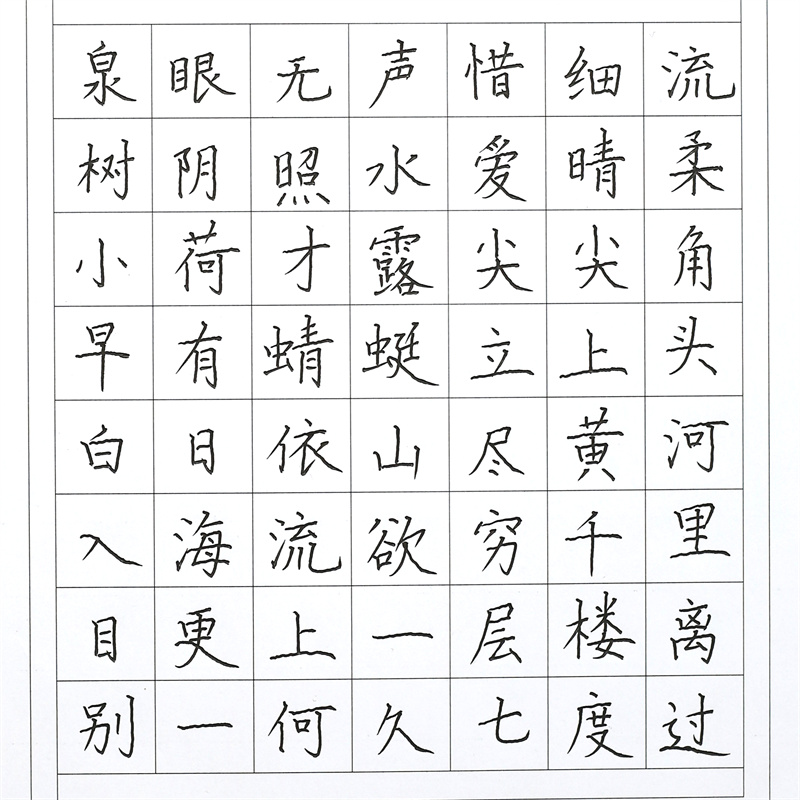 泉眼无声惜细流
树阴照水爱晴柔
小荷才露尖尖角
早有蜻蜓立上头
白日依山尽黄河
入海流欲穷千里
目更上一层楼离
别一何久七度过